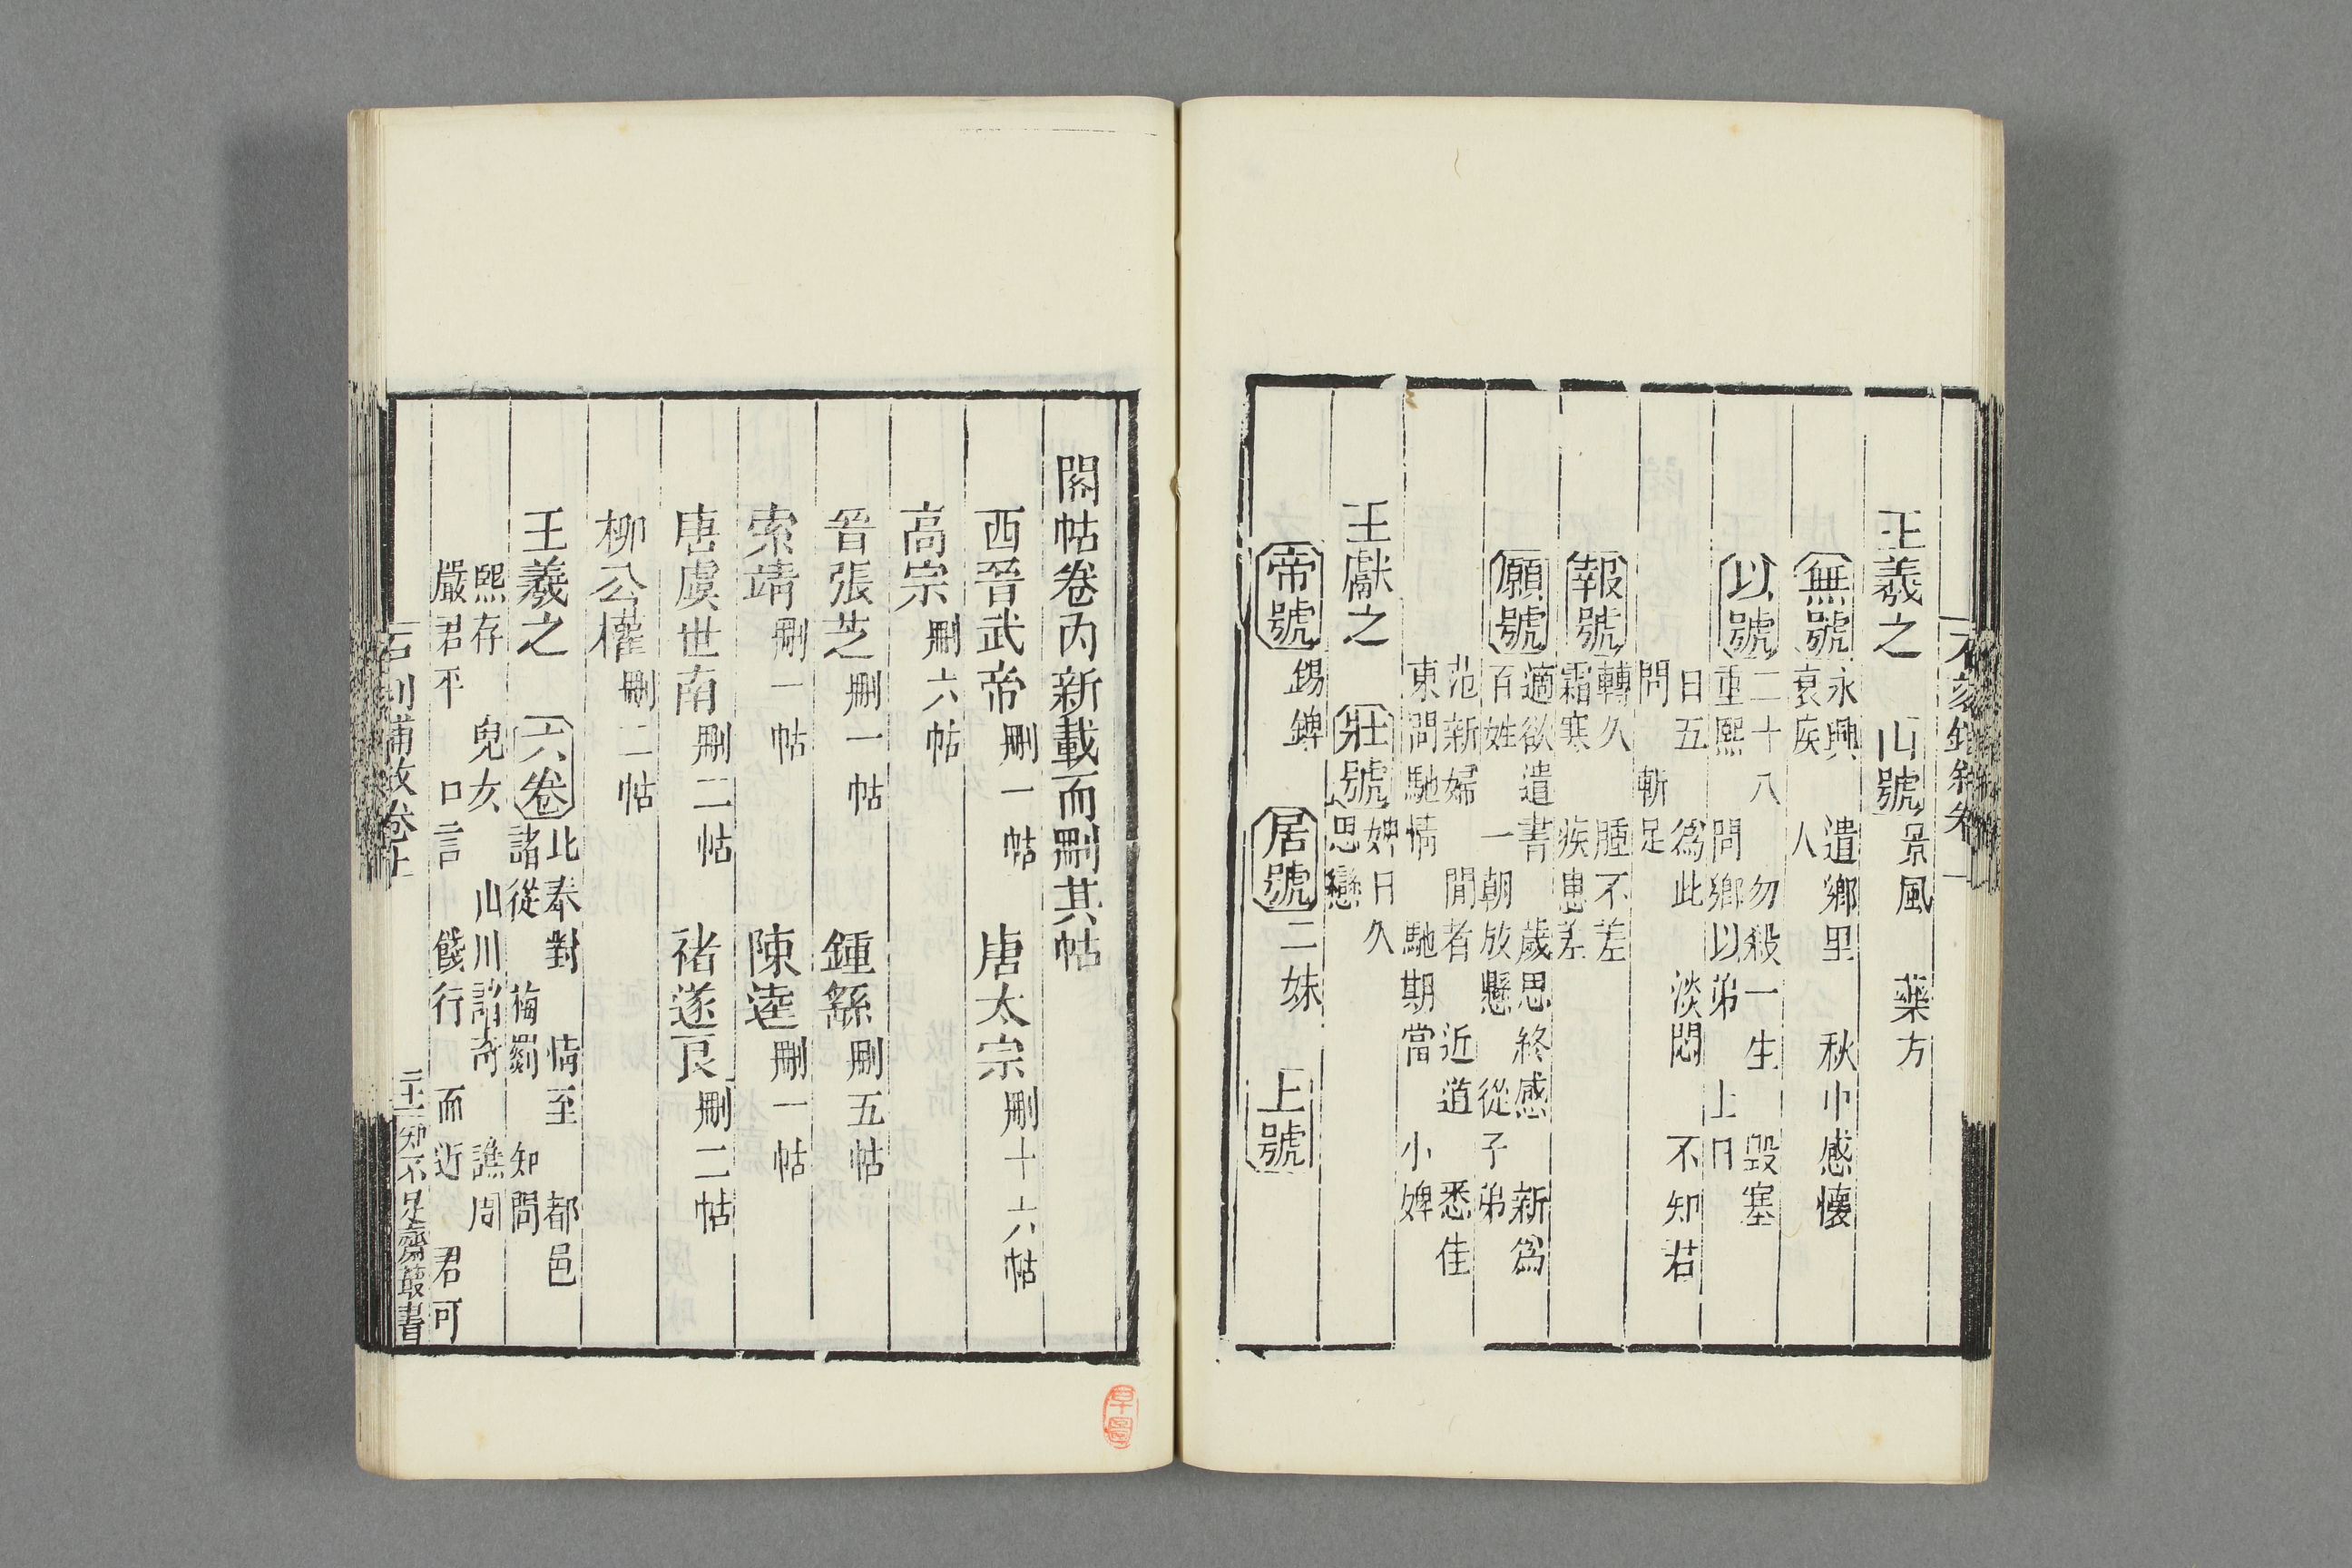 王羲之　山號景風　藥方
無號永興　遺鄉里　秋中感懷
哀疾　人
以號二十八　勿殺一生　毀塞
重熙　問鄉以弟　上日
日五　爲此　淡悶　不知若
問　斬足
報號轉久　腫不差
霜寒　疾患差
願號適欲遣書　歲思終感　新爲
百姓　一朝放懸　從子弟
范新婦　閒者　近道　悉佳
東問馳情　馳期當　小婢
王獻之　莊號婢日久
思戀
帝號錫錍　居號二妹　上號
閣帖卷內新載而刪其帖
西晉武帝刪一帖　唐太宗刪十六帖
高宗刪六帖
晉張芝刪一帖　鍾繇刪五帖
索靖刪一帖　陳逵刪一帖
唐虞世南刪二帖　褚遂良刪二帖
柳公權刪二帖
王羲之　六卷此奉對　情至　都邑
諸從　梅蜀　知問
熙存　兒女　山川諸奇　譙周
嚴君平　口言　餞行　而近　君可
石刻鋪敘卷上　二十一　知不足齋叢書